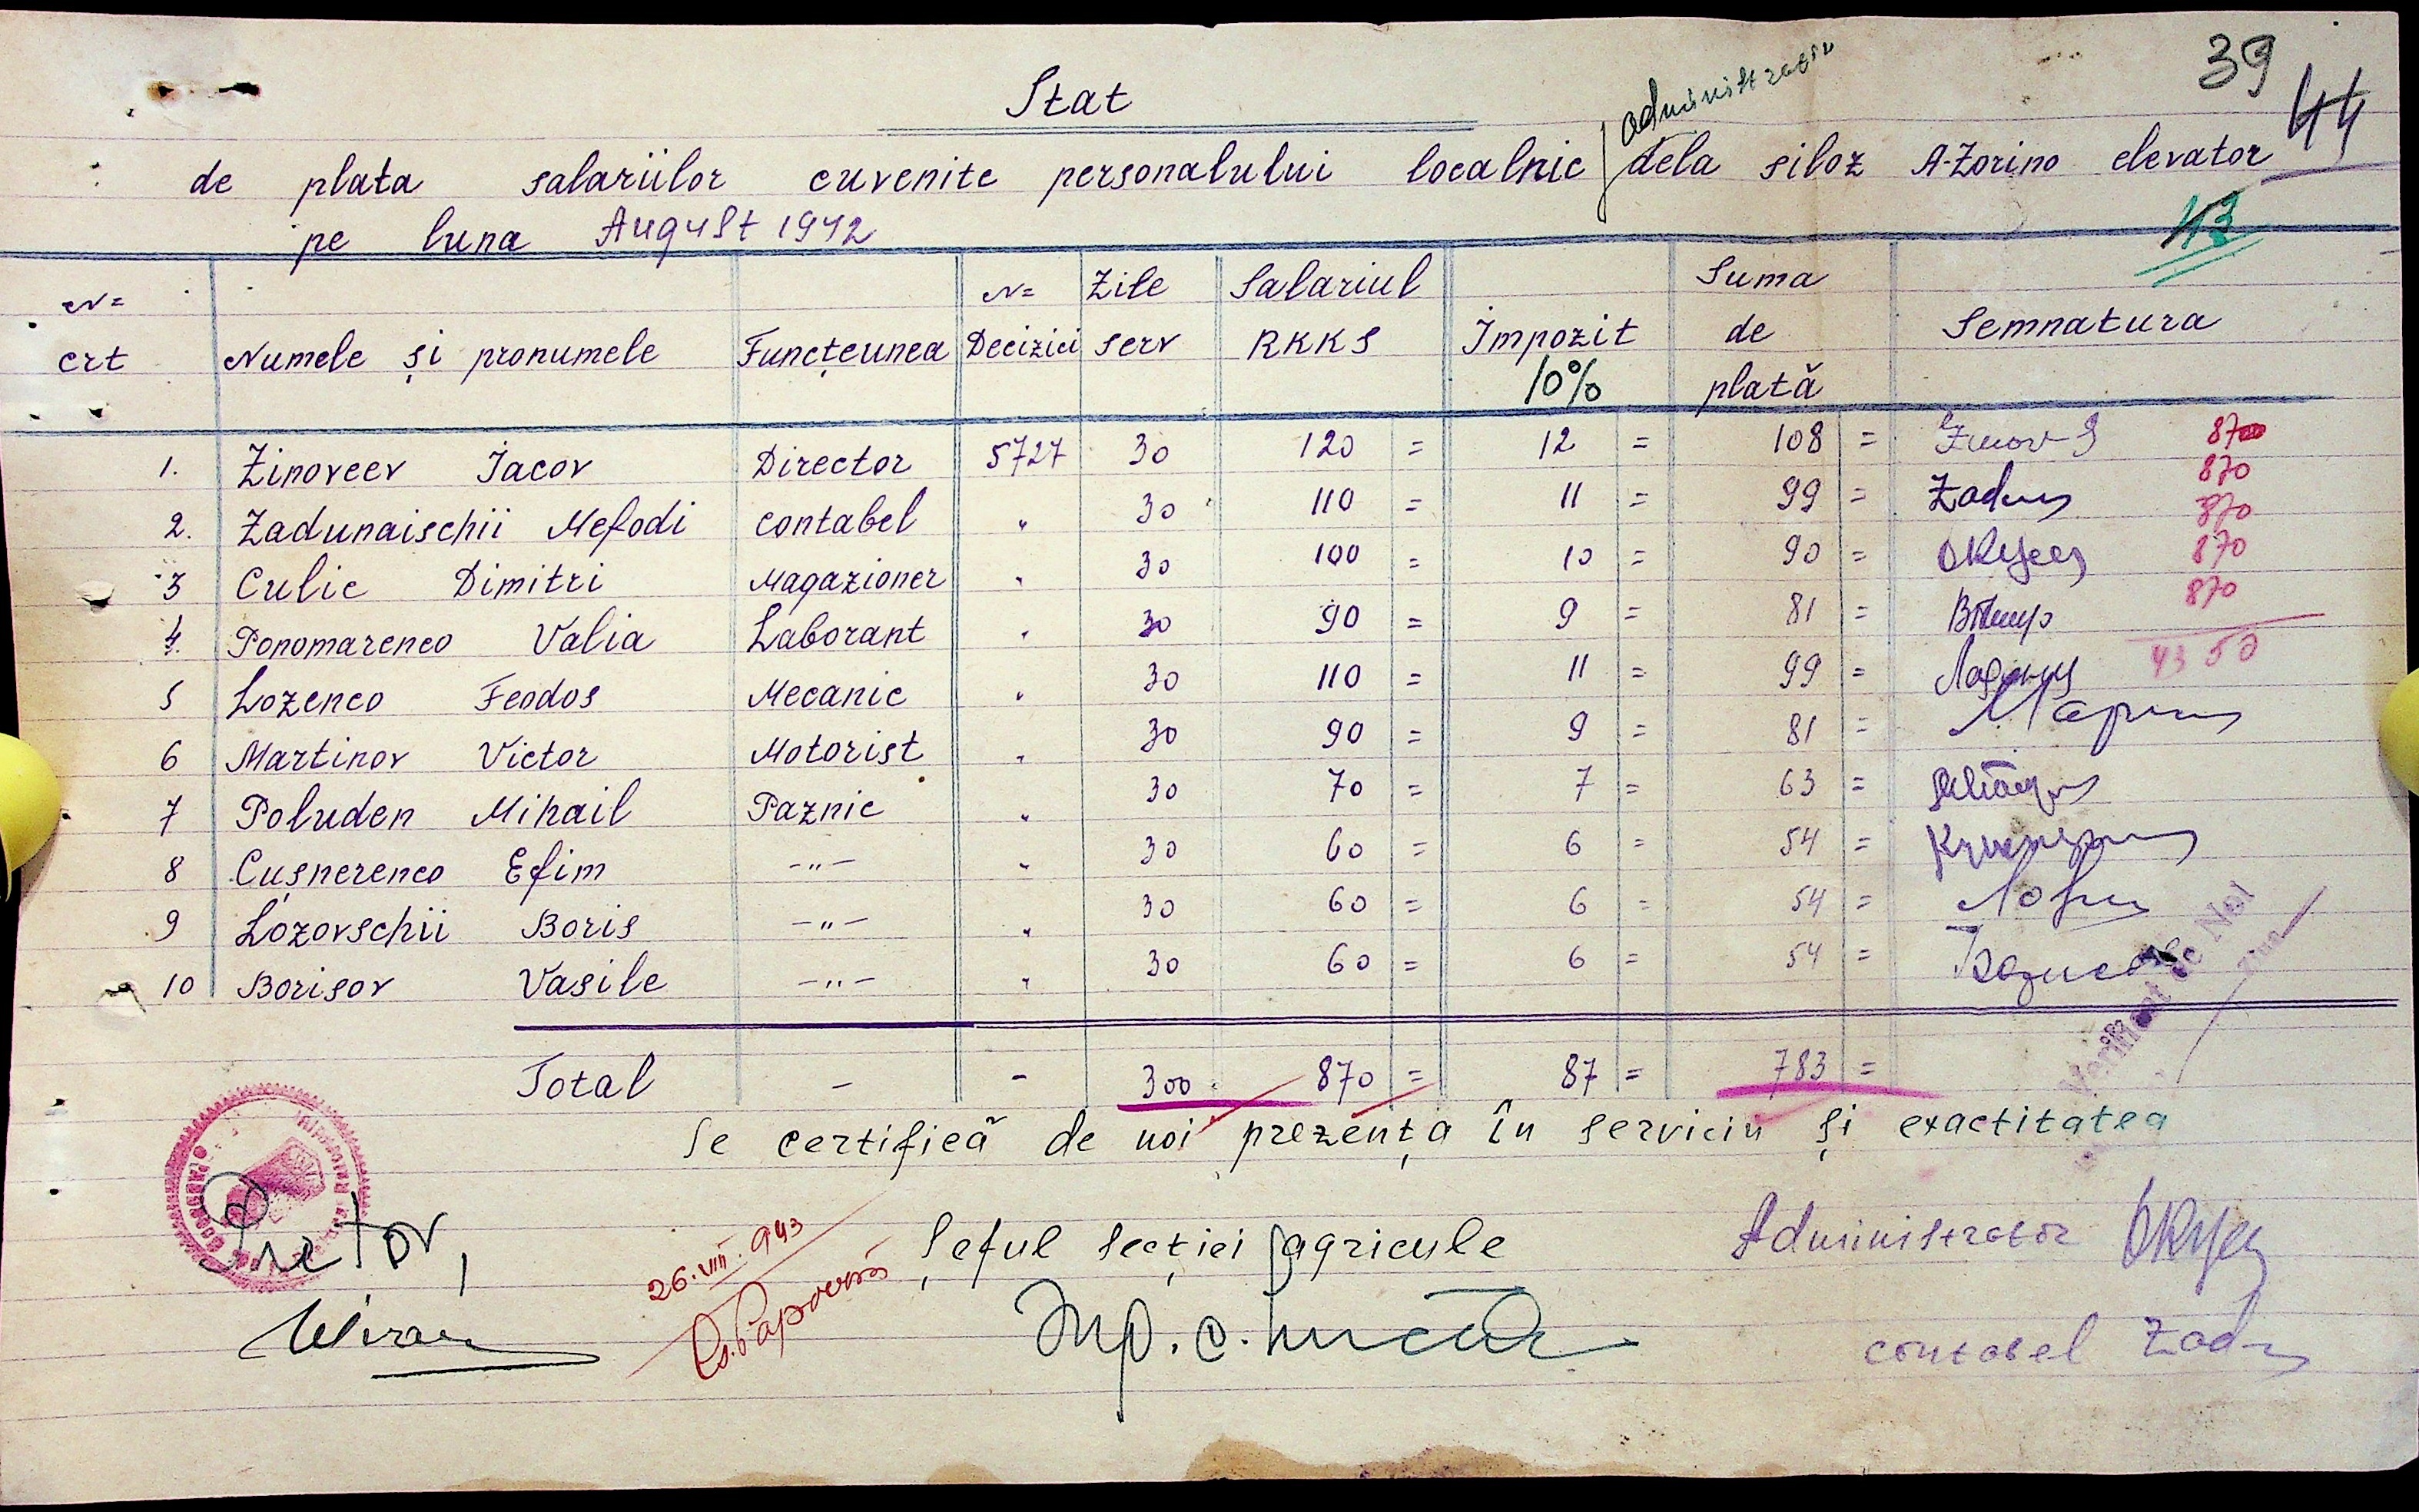 39
44
Stat
administrativ
de plata salariilor cuvenite personalului localnic dela siloz A-Zorino elevator
43
pe luna August 1942
N= crt Numele și pronumele Funcțeunea N= Decizici Zile serv Salariul RKKS Impozit 10% Suma de plată Semnatura
1. Zinoveev Iacov Director 5727 30 120 = 12 = 108 = 870
2. Zadunaischii Mefodi contabel " 30 110 = 11 = 99 = Zadun 870
3 Culic Dimitri Magazioner " 30 100 = 10 = 90 = 870
4. Ponomarenco Valia Laborant " 30 90 = 9 = 81 = 870
5 Lozenco Feodos Mecanic " 30 110 = 11 = 99 = 870
6 Martinov Victor Motorist " 30 90 = 9 = 81 = 4350
7 Poluden Mihail Paznic " 30 70 = 7 = 63 =
8 Cușnerenco Efim -"- " 30 60 = 6 = 54 =
9 Lozovschii Boris -"- " 30 60 = 6 = 54 =
10 Borisov Vasile -"- " 30 60 = 6 = 54 =
Total - - 300 870 = 87 = 783 =
Verificat de Noi
Se certifică de noi prezența în serviciu și exactitatea
Pretor,
26.VIII.943
Șeful secției agricule
Administrator
contabel Zad